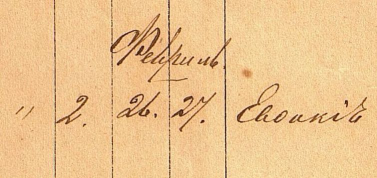 Февраль.
" 2. 26. 27. Евдокія